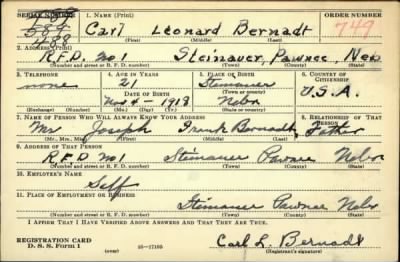 SERIAL NUMBER
1. NAME (Print)
ORDER NUMBER
Carl Leonard Bernadt
749
(First) (Middle) (Last)
2. ADDRESS (Print)
R.F.D. No 1 Steinauer, Pawnee, Neb
(Number and street or R. F. D. number) (Town) (County) (State)
3. TELEPHONE
4. AGE IN YEARS
5. PLACE OF BIRTH
6. COUNTRY OF CITIZENSHIP
none
21
Steinauer
DATE OF BIRTH
(Town or county)
U.S.A.
Nov 4 - 1918
Nebr
(Exchange) (Number)
(Mo.) (Day) (Yr.)
(State or country)
7. NAME OF PERSON WHO WILL ALWAYS KNOW YOUR ADDRESS
8. RELATIONSHIP OF THAT PERSON
Mr Joseph Frank Bernadt, Father
(Mr., Mrs., Miss) (First) (Middle) (Last)
9. ADDRESS OF THAT PERSON
R.F.D. No 1 Steinauer Pawnee Nebr
(Number and street or R. F. D. number) (Town) (County) (State)
10. EMPLOYER'S NAME
Self
11. PLACE OF EMPLOYMENT OR BUSINESS
Steinauer Pawnee Nebr
(Number and street or R. F. D. number) (Town) (County) (State)
I AFFIRM THAT I HAVE VERIFIED ABOVE ANSWERS AND THAT THEY ARE TRUE.
REGISTRATION CARD
D. S. S. Form 1
(over)
16-17105
Carl L. Bernadt
(Registrant's signature)